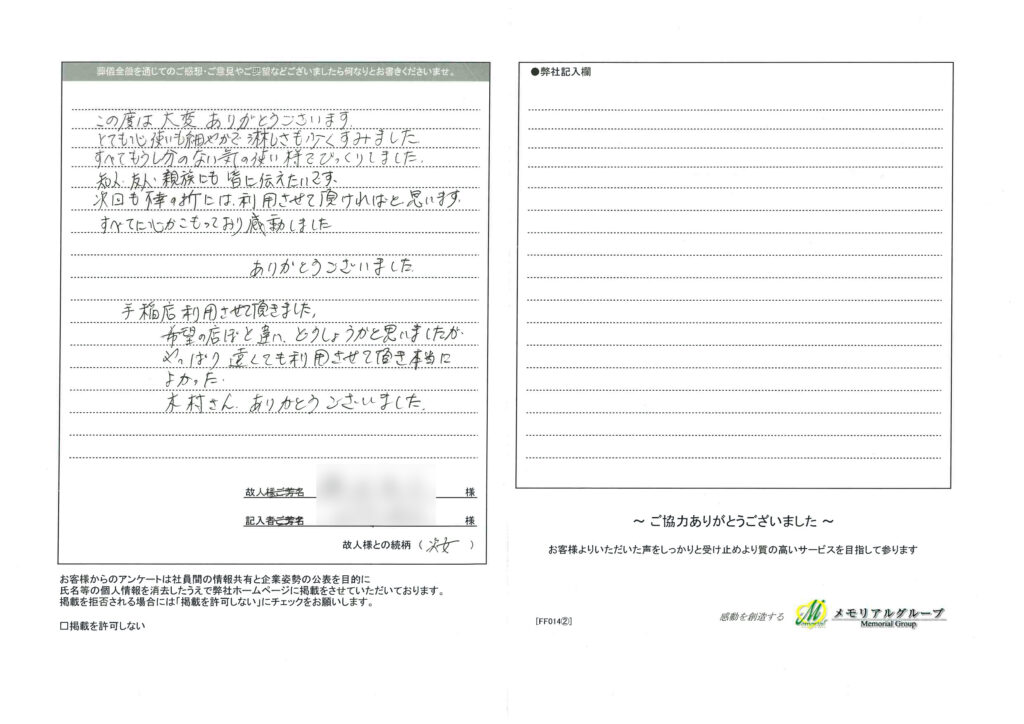 葬儀全般を通じてのご感想・ご意見やご要望などございましたら何なりとお書きくださいませ。
この度は大変ありがとうございます。
とても心使いも細やかで淋しさも少くすみました
すべてもうし分のない気の使い様でびっくりしました。
知人・友人・親族にも皆に伝えたいです。
次回も不幸の折には、利用させて頂ければと思います。
すべてに心がこもっており感動しました
ありがとうございました
手稲店利用させて頂きました。
希望の店ぽと違い、どうしようかと思いましたが
やっぱり遠くても利用させて頂き本当に
よかった。
木村さん、ありがとうございました。
故人様ご芳名 様
記入者ご芳名 様
故人様との続柄 ( 次女 )
お客様からのアンケートは社員間の情報共有と企業姿勢の公表を目的に
氏名等の個人情報を消去したうえで弊社ホームページに掲載をさせていただいております。
掲載を拒否される場合には「掲載を許可しない」にチェックをお願いします。
□掲載を許可しない
●弊社記入欄
～ ご協力ありがとうございました ～
お客様よりいただいた声をしっかりと受け止めより質の高いサービスを目指して参ります
[FF014②]
感動を創造する
メモリアルグループ
Memorial Group